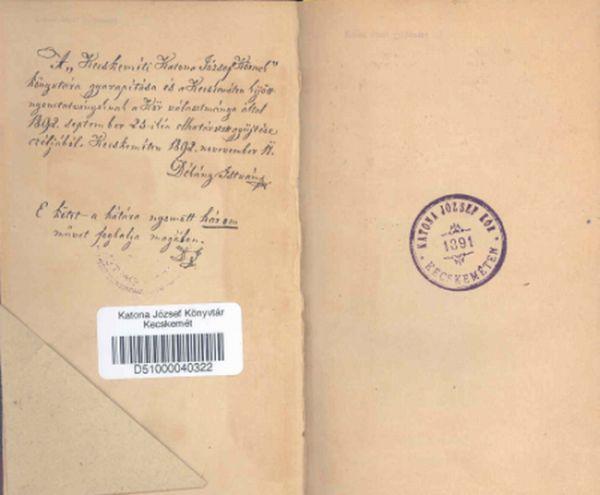 A „Kecskeméti Katona József Körnek"
könyvtára gyarapítása és a Kecskeméten kijött
nyomtatványainak a Kör választmánya által
1892. september 25-ikén elhatározott gyüjtése
czéljából. Kecskeméten 1892. november
István
E kötet a hátára nyomott három
művet foglalja magában.
Katona József Könyvtár
Kecskemét
D51000040322
KATONA JÓZSEF KÖR
1891
KECSKEMÉTEN